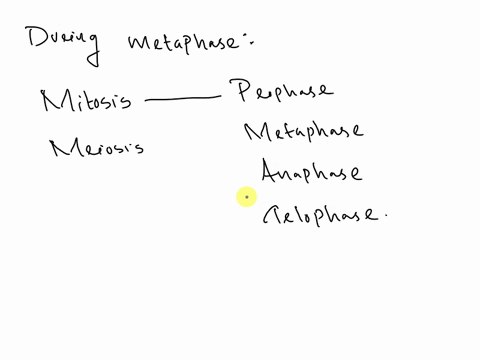 During metaphase:-
Mitosis — Prophase
Meiosis Metaphase
Anaphase
Telophase.